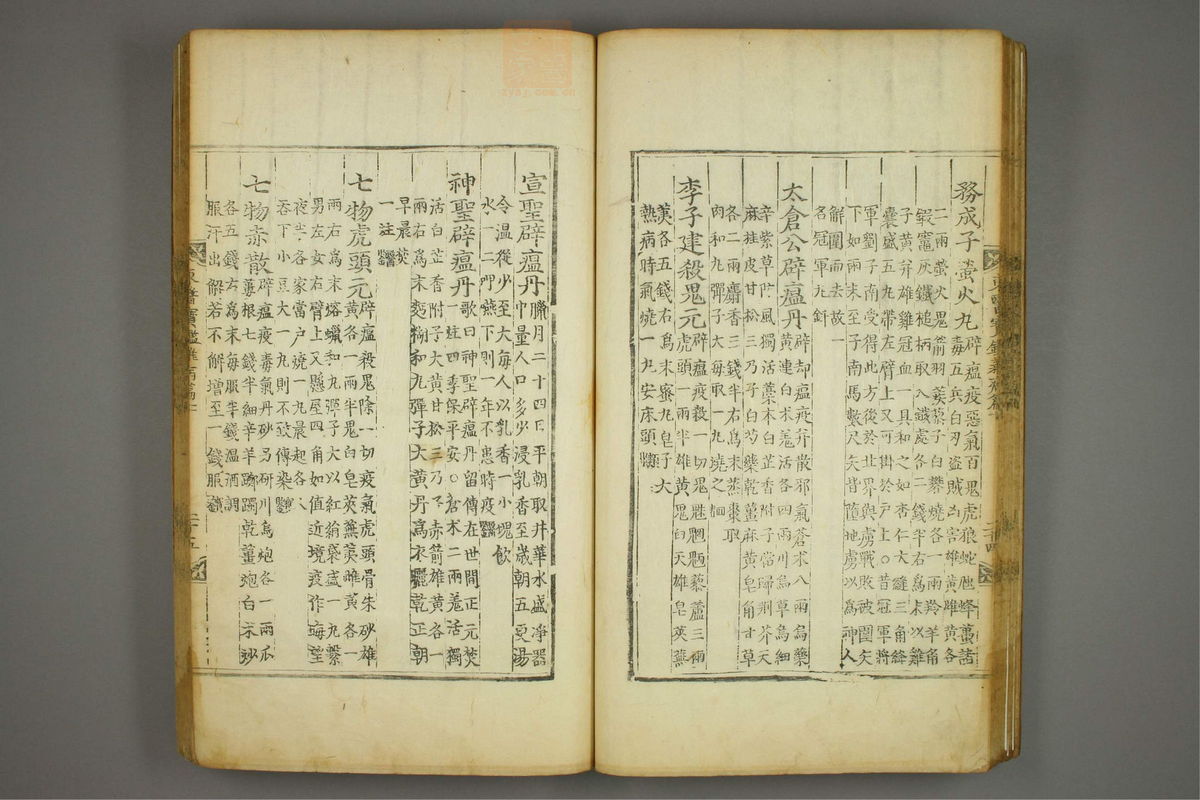 務成子螢火丸
辟瘟疫惡氣百鬼虎狼蛇虺蜂蠆諸
毒五兵白刃盜賊凶害雄黃雌黃各
二兩螢火鬼箭羽蒺藜子白礬燒各一兩羚羊角
鍛竈灰鐵槌柄取入鐵處各二錢半右爲末以雞
子黃幷雄雞冠血一具和之如杏仁大縫三角絳
囊盛五丸帶左臂上又可掛於戶上○昔冠軍將
軍劉子南受得此方後於北界與虜戰敗被圍矢
下如雨未至子南馬數尺矢皆墮地虜以爲神人
解圍而去故一
名冠軍丸
太倉公辟瘟丹
辟却瘟疫幷散邪氣蒼朮八兩烏藥
黃連白朮羌活各四兩川烏草烏細
辛紫草防風獨活藁本白芷香附子當歸荊芥天
麻桂皮甘松三乃子白芍藥乾薑麻黃皂角甘草
各二兩麝香三錢半右爲末蒸棗取
肉和丸彈子大每取一丸燒之
李子建殺鬼元
辟瘟疫殺一切鬼魅魍魎藜蘆三兩
虎頭一兩半雄黃鬼臼天雄皂莢蕪
荑各五錢右爲末蜜丸皂子大
熱病時氣燒一丸安床頭
宣聖辟瘟丹
臘月二十四日平朝取井華水盛淨器
中量人口多少浸乳香至歲朝五更湯
令溫從少至大每人以乳香一小塊飮
水一二呷嚥下則一年不患時疫
神聖辟瘟丹
歌曰神聖辟瘟丹留傳在世間正元焚
一炷四季保平安○蒼朮二兩羌活獨
活白芷香附子大黃甘松三乃子赤箭雄黃各一
兩右爲末麪糊和丸彈子大黃丹爲衣曬乾正朝
早晨焚
一炷
七物虎頭元
辟瘟殺鬼除一切疫氣虎頭骨朱砂雄
黃各一兩半鬼臼皂莢蕪荑雌黃各一
兩右爲末熔蠟和丸彈子大以紅絹袋盛一丸繫
男左女右臂上又懸屋四角如値近境疫作晦望
夜半各家當戶燒一丸晨起各人
吞下小豆大一丸則不致傳染
七物赤散
辟瘟疫毒氣丹砂另硏川烏炮各一兩瓜
蔞根七錢半細辛羊躑躅乾薑炮白朮炒
各五錢右爲末每服半錢溫酒調
服汗出解若不解增至一錢服